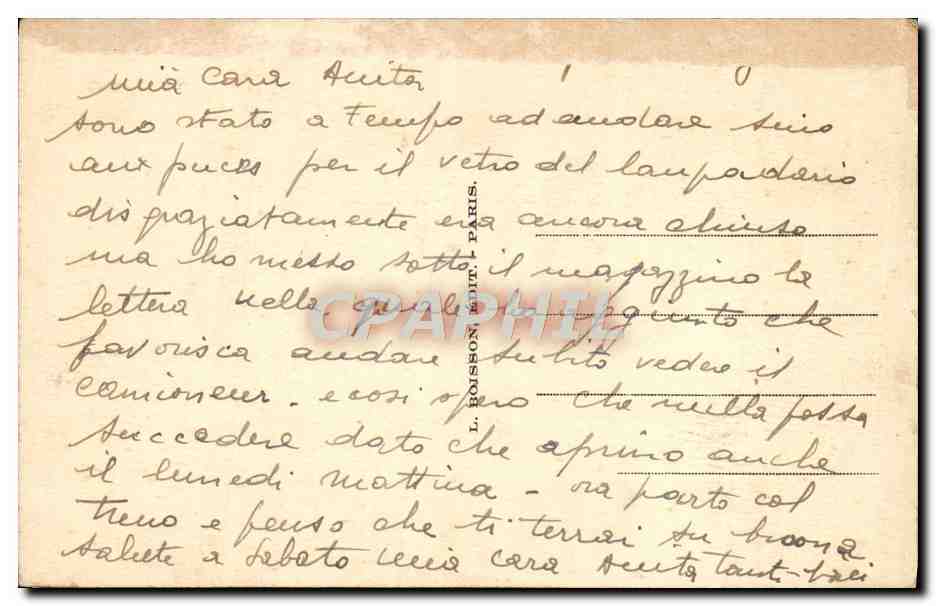 mia cara Anita
sono stato a tempo ad andare sino
aux puces per il vetro del lampadario
disgraziatamente era ancora chiuso
ma ho messo sotto il magazzino la
lettera nella quale ho aggiunto che
favorisca andare subito vedere il
camioneur - e cosi spero che nulla possa
succedere dato che aprino anche
il lunedi mattina - ora parto col
treno e penso che ti terrai su buona
salute a Sabato mia cara Anita tanti baci
L. BOISSON, EDIT. - PARIS.
CPAPHIL